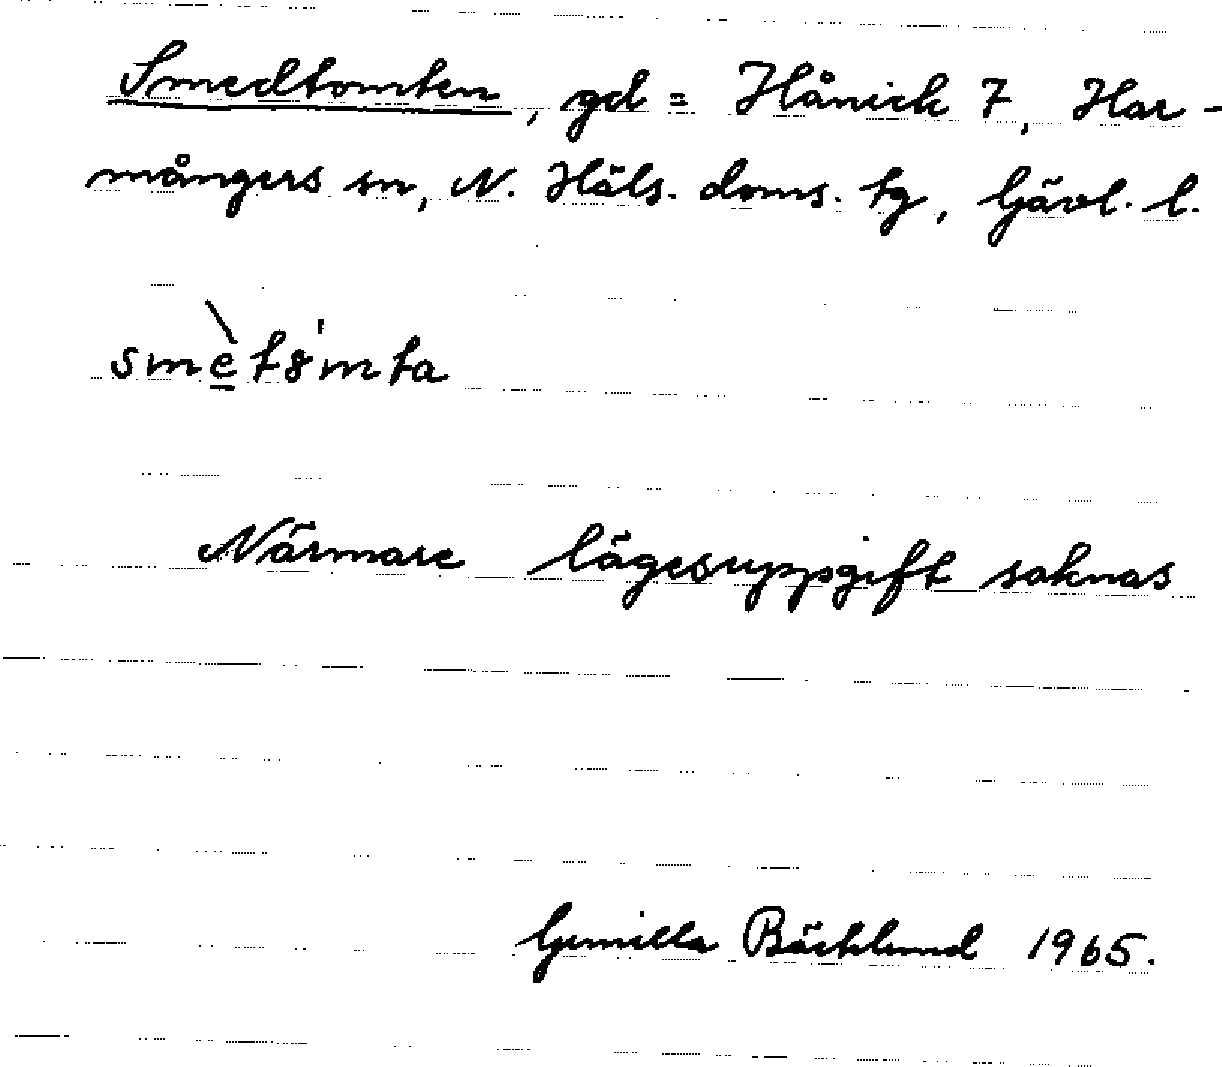 Smedtomten, gd = Hånick 7, Har-
mångers sn, N. Häls. doms. tg, Gävl. l.
smèt8mta
Närmare lägesuppgift saknas
Gunilla Bäcklund 1965.